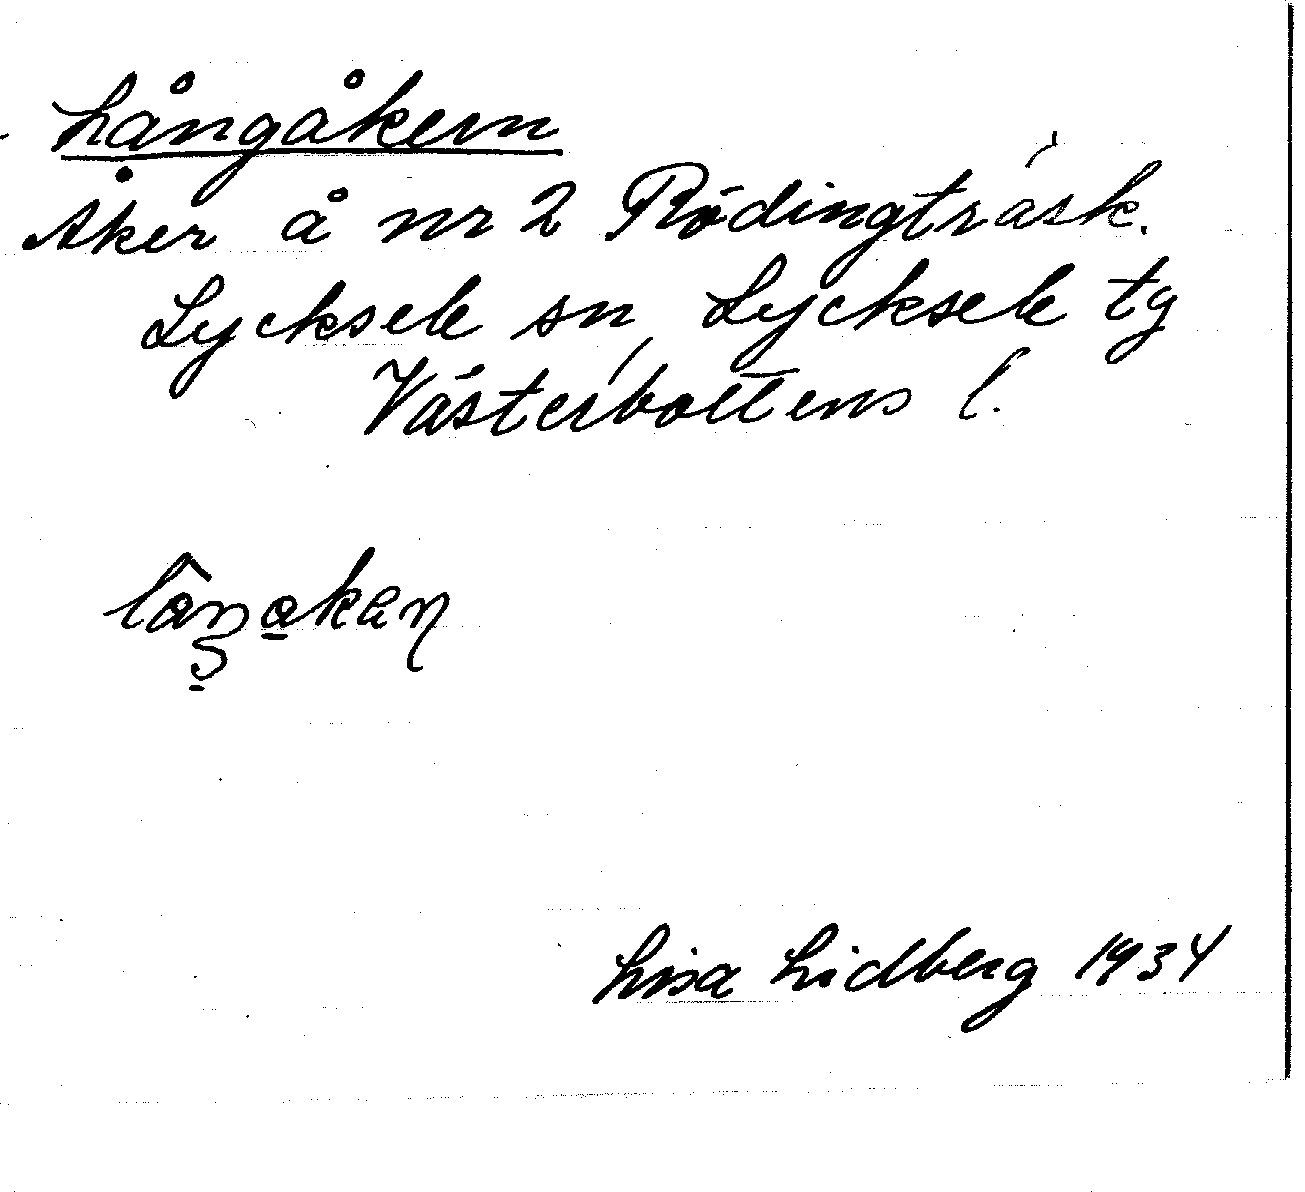 Långåkern
Åker å nr 2 Rödingträsk.
Lycksele sn Lycksele tg
Västerbottens l.
Lisa Lidberg 1934